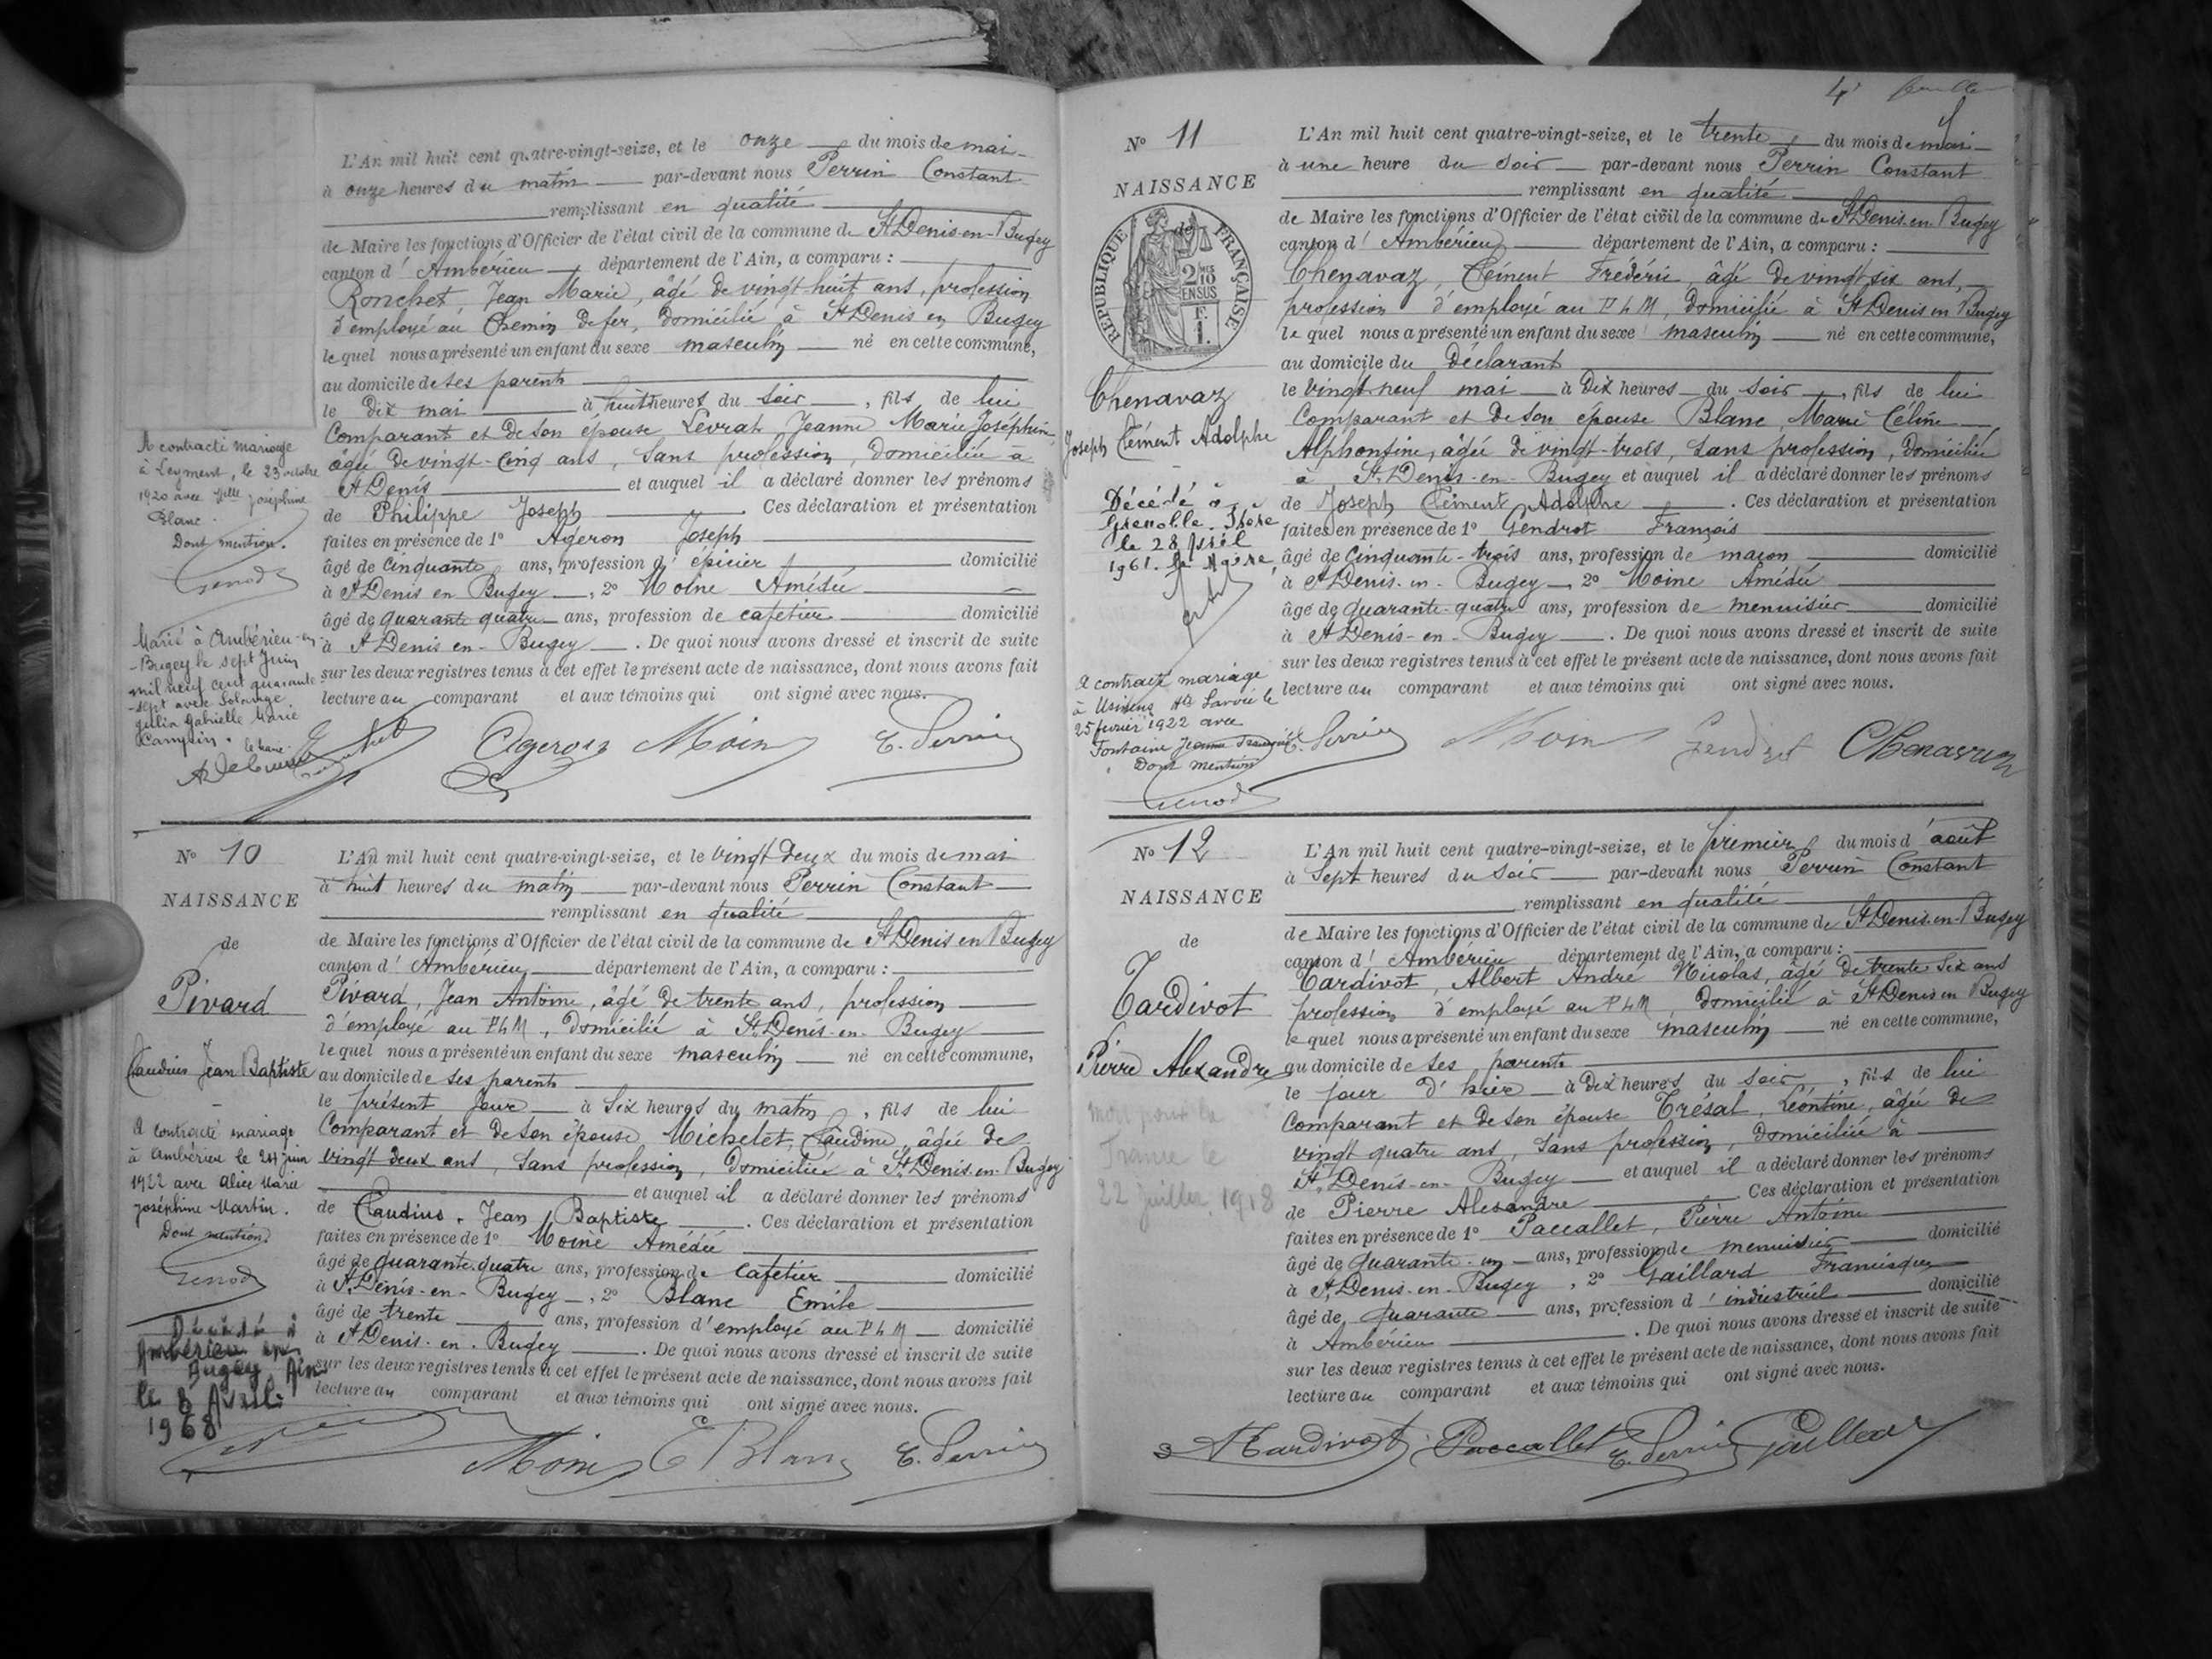 L'An mil huit cent quatre-vingt-seize, et le onze du mois de mai
à onze heures du matin par-devant nous Perrin Constant
remplissant en qualité
de Maire les fonctions d'Officier de l'état civil de la commune de St Denis-en-Bugey
canton d'Ambérieu département de l'Ain, a comparu :
Ronchet, Jean Marie, âgé de vingt-huit ans, profession
d'employé au Chemin de fer, domicilié à St Denis en Bugey
le quel nous a présenté un enfant du sexe masculin né en cette commune,
au domicile de ses parents
le dix mai à huit heures du soir, fils de lui
Comparant et de son épouse Levrat Jeanne Marie Joséphine
âgée de vingt-cinq ans, sans profession, domiciliée à
St Denis et auquel il a déclaré donner les prénoms
de Philippe Joseph. Ces déclaration et présentation
faites en présence de 1° Ageron Joseph
âgé de cinquante ans, profession d'épicier domicilié
à St Denis en Bugey, 2° Moine Amédée
âgé de quarante quatre ans, profession de cafetier domicilié
à St Denis en-Bugey. De quoi nous avons dressé et inscrit de suite
sur les deux registres tenus à cet effet le présent acte de naissance, dont nous avons fait
lecture au comparant et aux témoins qui ont signé avec nous.
Ageron Moine E. Perrin
A contracté mariage
à Leyment, le 23 octobre
1920 avec Melle Joséphine
Blanc.
Dont mention.
Marié à Ambérieu-en
-Bugey le sept Juin
mil neuf cent quarante
-sept avec Solange
Julia Gabrielle Marie
le Maire
N° 10
NAISSANCE
de
Pivard
Claudius Jean Baptiste
A contracté mariage
à Ambérieu le 24 juin
1922 avec Alice Marie
Joséphine Martin.
Dont mention.
Décédé à
Ambérieu en
Bugey Ain
le 8 Avril
1968
L'An mil huit cent quatre-vingt-seize, et le vingt deux du mois de mai
à huit heures du matin par-devant nous Perrin Constant
remplissant en qualité
de Maire les fonctions d'Officier de l'état civil de la commune de St Denis en Bugey
canton d'Ambérieu département de l'Ain, a comparu :
Pivard, Jean Antoine, âgé de trente ans, profession
d'employé au PLM, domicilié à St Denis-en-Bugey
le quel nous a présenté un enfant du sexe masculin né en cette commune,
au domicile de ses parents
le présent jour à six heures du matin, fils de lui
Comparant et de son épouse, Michelet, Claudine, âgée de
vingt deux ans, sans profession, domiciliée à St Denis-en-Bugey
et auquel il a déclaré donner les prénoms
de Claudius, Jean Baptiste. Ces déclaration et présentation
faites en présence de 1° Moine Amédée
âgé de quarante quatre ans, profession de cafetier domicilié
à St Denis-en-Bugey, 2° Blanc Emile
âgé de trente ans, profession d'employé au PLM domicilié
à St Denis-en-Bugey. De quoi nous avons dressé et inscrit de suite
sur les deux registres tenus à cet effet le présent acte de naissance, dont nous avons fait
lecture au comparant et aux témoins qui ont signé avec nous.
Moine E Blanc E. Perrin
4e feuille
N° 11
NAISSANCE
de
REPUBLIQUE FRANÇAISE
Chenavaz
Joseph Clément Adolphe
Décédé à
Grenoble Isère
le 28 Avril
1961. le Maire,
A contracté mariage
25 février 1922 avec
Dont mention
L'An mil huit cent quatre-vingt-seize, et le trente du mois de mai
à une heure du soir par-devant nous Perrin Constant
remplissant en qualité
de Maire les fonctions d'Officier de l'état civil de la commune de St Denis-en-Bugey
canton d'Ambérieu département de l'Ain, a comparu :
Chenavaz, Clément Frédéric, âgé de vingt-six ans,
profession d'employé au PLM, domicilié à St Denis en Bugey
le quel nous a présenté un enfant du sexe masculin né en cette commune,
au domicile du déclarant
le vingt-neuf mai à dix heures du soir, fils de lui
Comparant et de son épouse Blanc Marie Céline
Alphonsine, âgée de vingt-trois, sans profession, domiciliée
à St Denis-en-Bugey et auquel il a déclaré donner les prénoms
de Joseph Clément Adolphe. Ces déclaration et présentation
faites en présence de 1° Gendrot François
âgé de cinquante-trois ans, profession de maçon domicilié
à St Denis-en-Bugey, 2° Moine Amédée
âgé de quarante-quatre ans, profession de menuisier domicilié
à St Denis-en-Bugey. De quoi nous avons dressé et inscrit de suite
sur les deux registres tenus à cet effet le présent acte de naissance, dont nous avons fait
lecture au comparant et aux témoins qui ont signé avec nous.
E. Perrin Moine Gendrot Chenavaz
N° 12
NAISSANCE
de
Tardivot
Pierre Alexandre
Mort pour la
France le
22 juillet 1918
L'An mil huit cent quatre-vingt-seize, et le premier du mois d'août
à sept heures du soir par-devant nous Perrin Constant
remplissant en qualité
de Maire les fonctions d'Officier de l'état civil de la commune de St Denis-en-Bugey
canton d'Ambérieu département de l'Ain, a comparu :
Tardivot, Albert André Nicolas, âgé de trente six ans
profession d'employé au PLM, domicilié à St Denis en Bugey
le quel nous a présenté un enfant du sexe masculin né en cette commune,
au domicile de ses parents
le jour d'hier à dix heures du soir, fils de lui
Comparant et de son épouse Trésal, Léontine, âgée de
vingt quatre ans, sans profession, domiciliée à
St Denis-en-Bugey et auquel il a déclaré donner les prénoms
de Pierre Alexandre Ces déclaration et présentation
faites en présence de 1° Paccallet, Pierre Antoine
âgé de quarante-un ans, profession de menuisier domicilié
à St Denis-en-Bugey, 2° Gaillard Francisque
âgé de quarante ans, profession d'industriel domicilié
à Ambérieu. De quoi nous avons dressé et inscrit de suite
sur les deux registres tenus à cet effet le présent acte de naissance, dont nous avons fait
lecture au comparant et aux témoins qui ont signé avec nous.
Tardivot Paccallet E. Perrin Gaillard